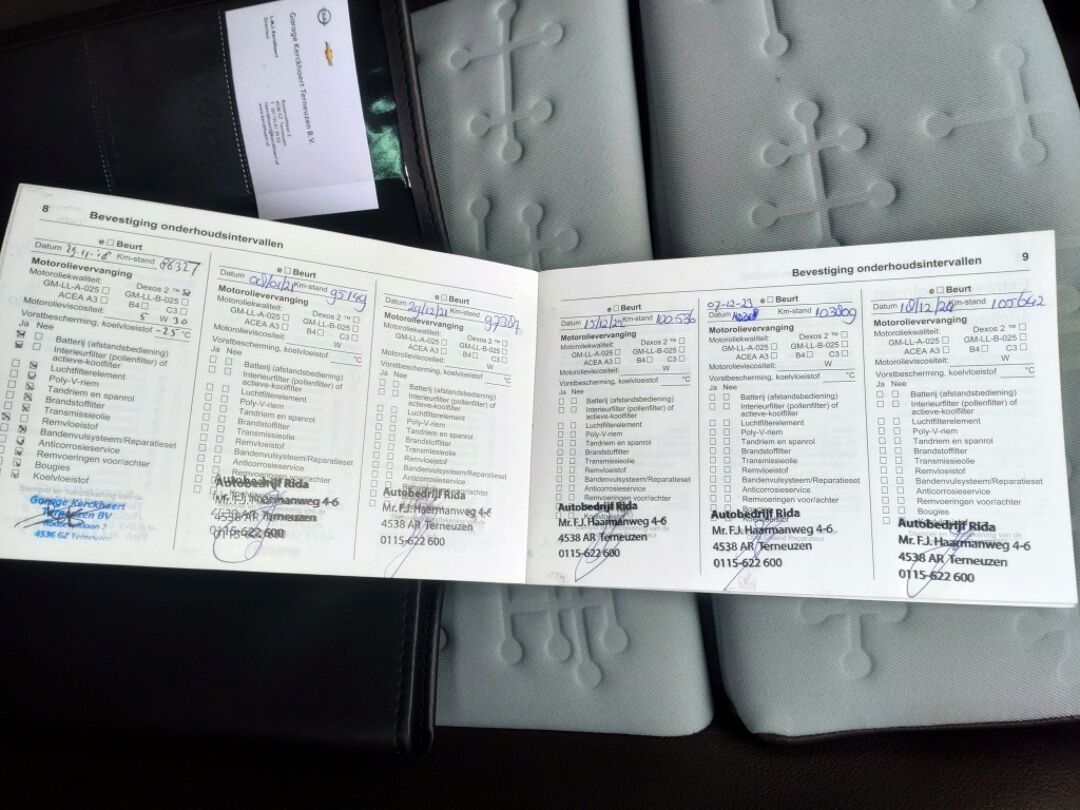 Garage Kerckhaert Terneuzen B.V.
8 Bevestiging onderhoudsintervallen
e □ Beurt
Datum 29-11-18 Km-stand 86327
Motorolievervanging
Motoroliekwaliteit: Dexos 2 ™
GM-LL-A-025 GM-LL-B-025
ACEA A3 B4 C3
Motorolieviscositeit: 5 W 30
Vorstbescherming, koelvloeistof -25 °C
Ja Nee
Batterij (afstandsbediening)
Interieurfilter (pollenfilter) of
actieve-koolfilter
Luchtfilterelement
Poly-V-riem
Tandriem en spanrol
Brandstoffilter
Transmissieolie
Remvloeistof
Bandenvulsysteem/Reparatieset
Anticorrosieservice
Remvoeringen voor/achter
Bougies
Koelvloeistof
Garage Kerckhaert
Terneuzen BV
4536 GZ Terneuzen
e □ Beurt
Datum 08/01/21 Km-stand 95199
Motorolievervanging
Motoroliekwaliteit: Dexos 2 ™
GM-LL-A-025 GM-LL-B-025
ACEA A3 B4 C3
Motorolieviscositeit: W
Vorstbescherming, koelvloeistof °C
Ja Nee
Batterij (afstandsbediening)
Interieurfilter (pollenfilter) of
actieve-koolfilter
Luchtfilterelement
Poly-V-riem
Tandriem en spanrol
Brandstoffilter
Transmissieolie
Remvloeistof
Bandenvulsysteem/Reparatieset
Anticorrosieservice
Remvoeringen voor/achter
Autobedrijf Rida
Mr. F.J. Haarmanweg 4-6
4538 AR Terneuzen
0115-622 600
e □ Beurt
Datum 29/12/21 Km-stand 97387
Motorolievervanging
Motoroliekwaliteit: Dexos 2 ™
GM-LL-A-025 GM-LL-B-025
ACEA A3 B4 C3
Motorolieviscositeit: W
Vorstbescherming, koelvloeistof °C
Ja Nee
Batterij (afstandsbediening)
Interieurfilter (pollenfilter) of
actieve-koolfilter
Luchtfilterelement
Poly-V-riem
Tandriem en spanrol
Brandstoffilter
Transmissieolie
Remvloeistof
Bandenvulsysteem/Reparatieset
Anticorrosieservice
Remvoeringen voor/achter
Autobedrijf Rida
Mr. F.J. Haarmanweg 4-6
4538 AR Terneuzen
0115-622 600
Bevestiging onderhoudsintervallen 9
e □ Beurt
Datum 15/12/22 Km-stand 100536
Motorolievervanging
Motoroliekwaliteit: Dexos 2 ™
GM-LL-A-025 GM-LL-B-025
ACEA A3 B4 C3
Motorolieviscositeit: W
Vorstbescherming, koelvloeistof °C
Ja Nee
Batterij (afstandsbediening)
Interieurfilter (pollenfilter) of
actieve-koolfilter
Luchtfilterelement
Poly-V-riem
Tandriem en spanrol
Brandstoffilter
Transmissieolie
Remvloeistof
Bandenvulsysteem/Reparatieset
Anticorrosieservice
Remvoeringen voor/achter
Autobedrijf Rida
Mr. F.J. Haarmanweg 4-6
4538 AR Terneuzen
0115-622 600
07-12-23 e □ Beurt
Datum Km-stand 103809
Motorolievervanging
Motoroliekwaliteit: Dexos 2 ™
GM-LL-A-025 GM-LL-B-025
ACEA A3 B4 C3
Motorolieviscositeit: W
Vorstbescherming, koelvloeistof °C
Ja Nee
Batterij (afstandsbediening)
Interieurfilter (pollenfilter) of
actieve-koolfilter
Luchtfilterelement
Poly-V-riem
Tandriem en spanrol
Brandstoffilter
Transmissieolie
Remvloeistof
Bandenvulsysteem/Reparatieset
Anticorrosieservice
Remvoeringen voor/achter
Autobedrijf Rida
Mr. F.J. Haarmanweg 4-6
4538 AR Terneuzen
0115-622 600
e □ Beurt
Datum 18/12/24 Km-stand 105642
Motorolievervanging
Motoroliekwaliteit: Dexos 2 ™
GM-LL-A-025 GM-LL-B-025
ACEA A3 B4 C3
Motorolieviscositeit: W
Vorstbescherming, koelvloeistof °C
Ja Nee
Batterij (afstandsbediening)
Interieurfilter (pollenfilter) of
actieve-koolfilter
Luchtfilterelement
Poly-V-riem
Tandriem en spanrol
Brandstoffilter
Transmissieolie
Remvloeistof
Bandenvulsysteem/Reparatieset
Anticorrosieservice
Remvoeringen voor/achter
Bougies
Autobedrijf Rida
Mr. F.J. Haarmanweg 4-6
4538 AR Terneuzen
0115-622 600